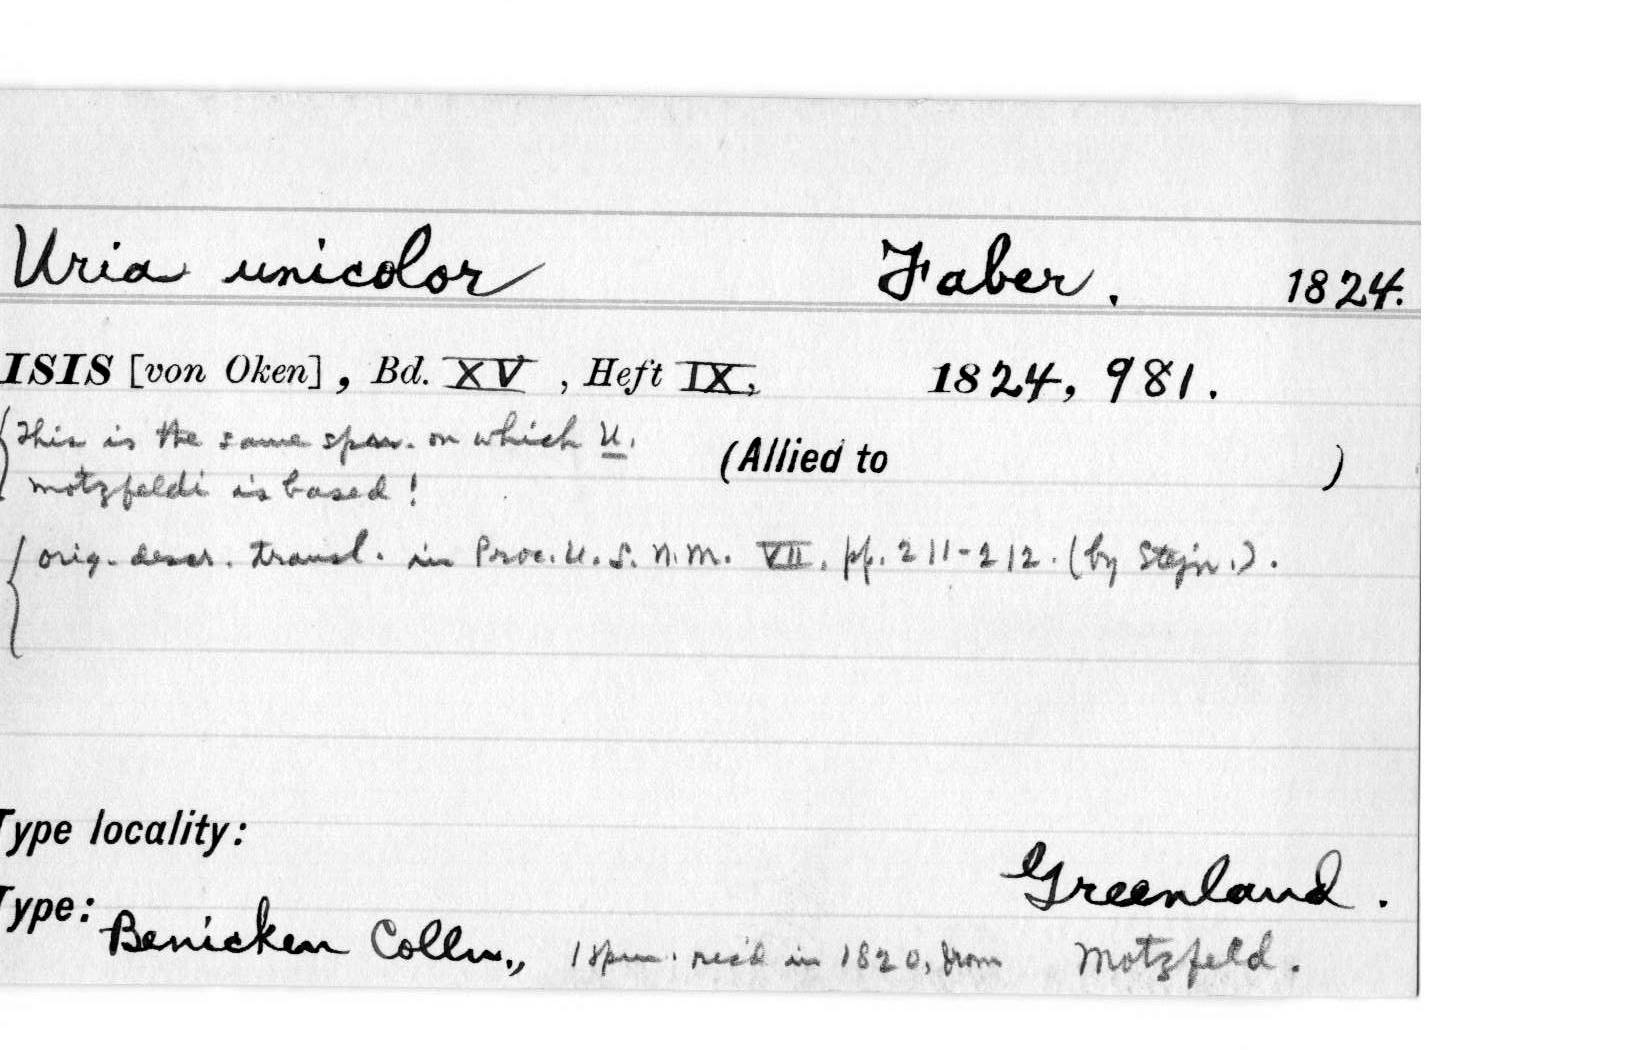 Uria unicolor Faber. 1824.
ISIS [von Oken], Bd. XV, Heft IX, 1824, 981.
This is the same spm. on which U. (Allied to )
motzfeldi is based!
orig. descr. transl. in Proc. U. S. N. M. VII. pp. 211-212. (by Stejn.).
Type locality:
Greenland.
Type: Benicken Colln., 1 spm. rec'd in 1820, from Motzfeld.